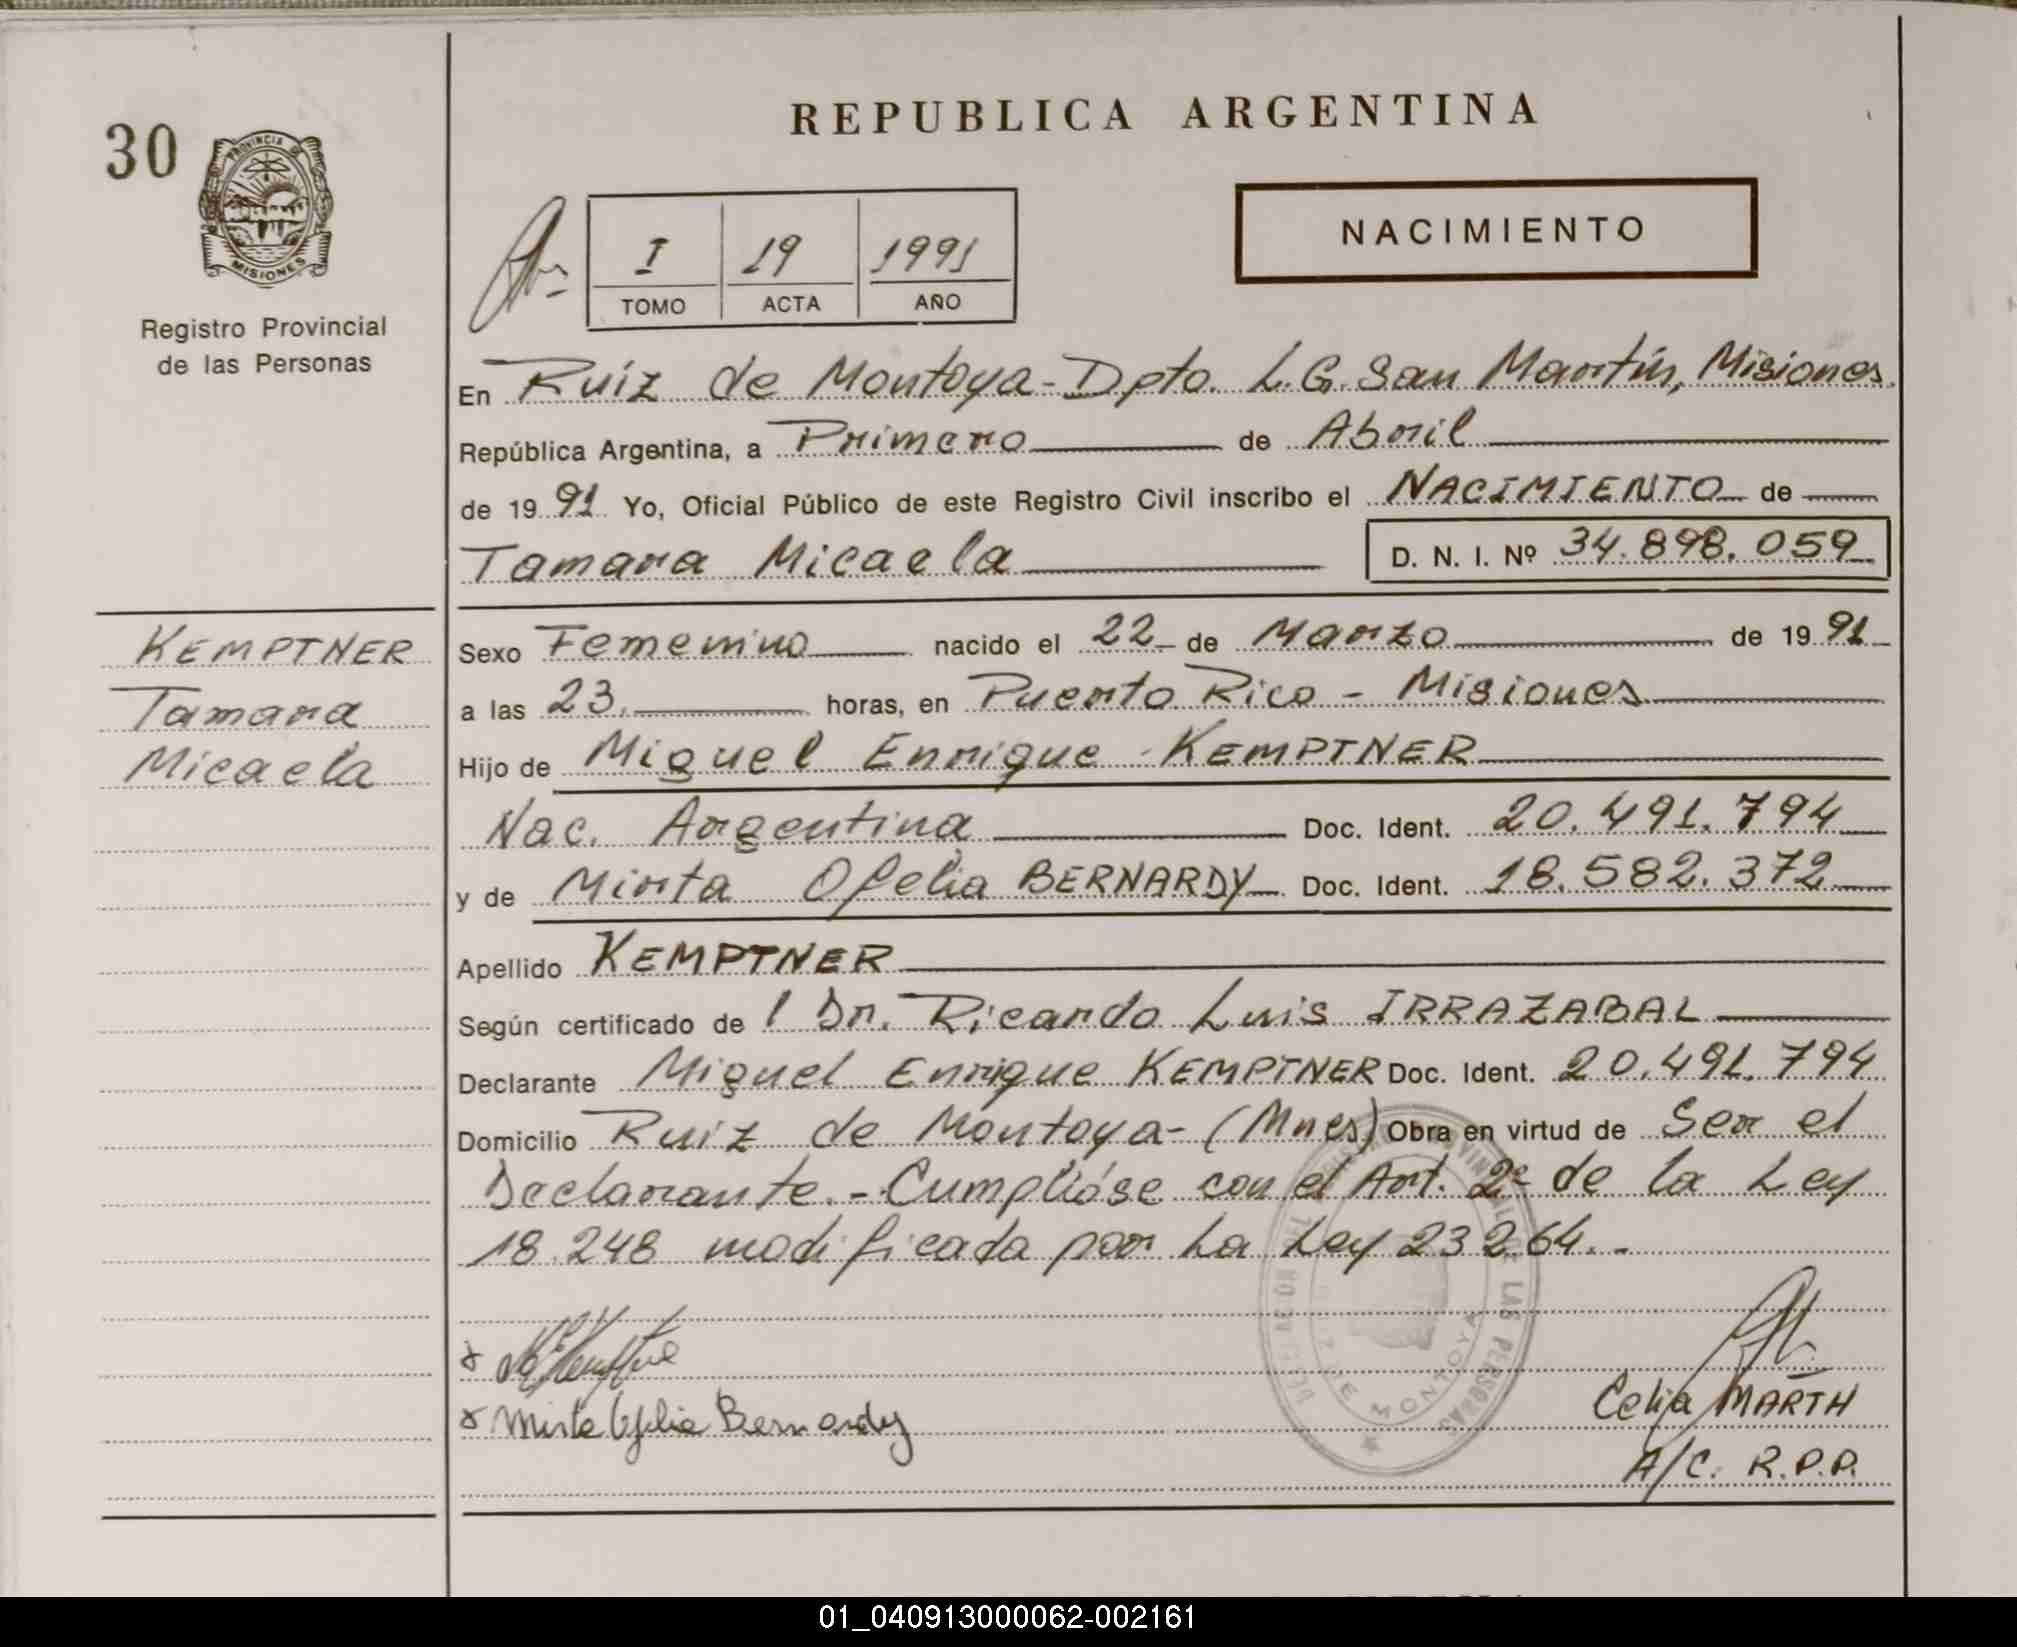 REPUBLICA ARGENTINA
30
PROVINCIA DE
MISIONES
Registro Provincial
de las Personas
NACIMIENTO
I 19 1991
TOMO ACTA AÑO
En Ruiz de Montoya - Dpto. L.G. San Martín, Misiones.
República Argentina, a Primero de Abril
de 19 91 Yo, Oficial Público de este Registro Civil inscribo el NACIMIENTO de
Tamara Micaela D. N. I. Nº 34.898.059
KEMPTNER
Tamara
Micaela
Sexo Femenino nacido el 22 de Marzo de 19 91
a las 23. horas, en Puerto Rico - Misiones
Hijo de Miguel Enrique KEMPTNER
Nac. Argentina Doc. Ident. 20.491.794
y de Mirta Ofelia BERNARDY Doc. Ident. 18.582.372
Apellido KEMPTNER
Según certificado de l Dr. Ricardo Luis IRRAZABAL
Declarante Miguel Enrique KEMPTNER Doc. Ident. 20.491.794
Domicilio Ruiz de Montoya - (Mnes) Obra en virtud de Ser el
Declarante. - Cumplióse con el Art. 2º de la Ley
18.248 modificada por La Ley 23264. -
Mirta Ofelia Bernardy
Celia MARTH
A/C. R.P.P.
DE LAS PERSONAS
DE MONTOYA
01_040913000062-002161